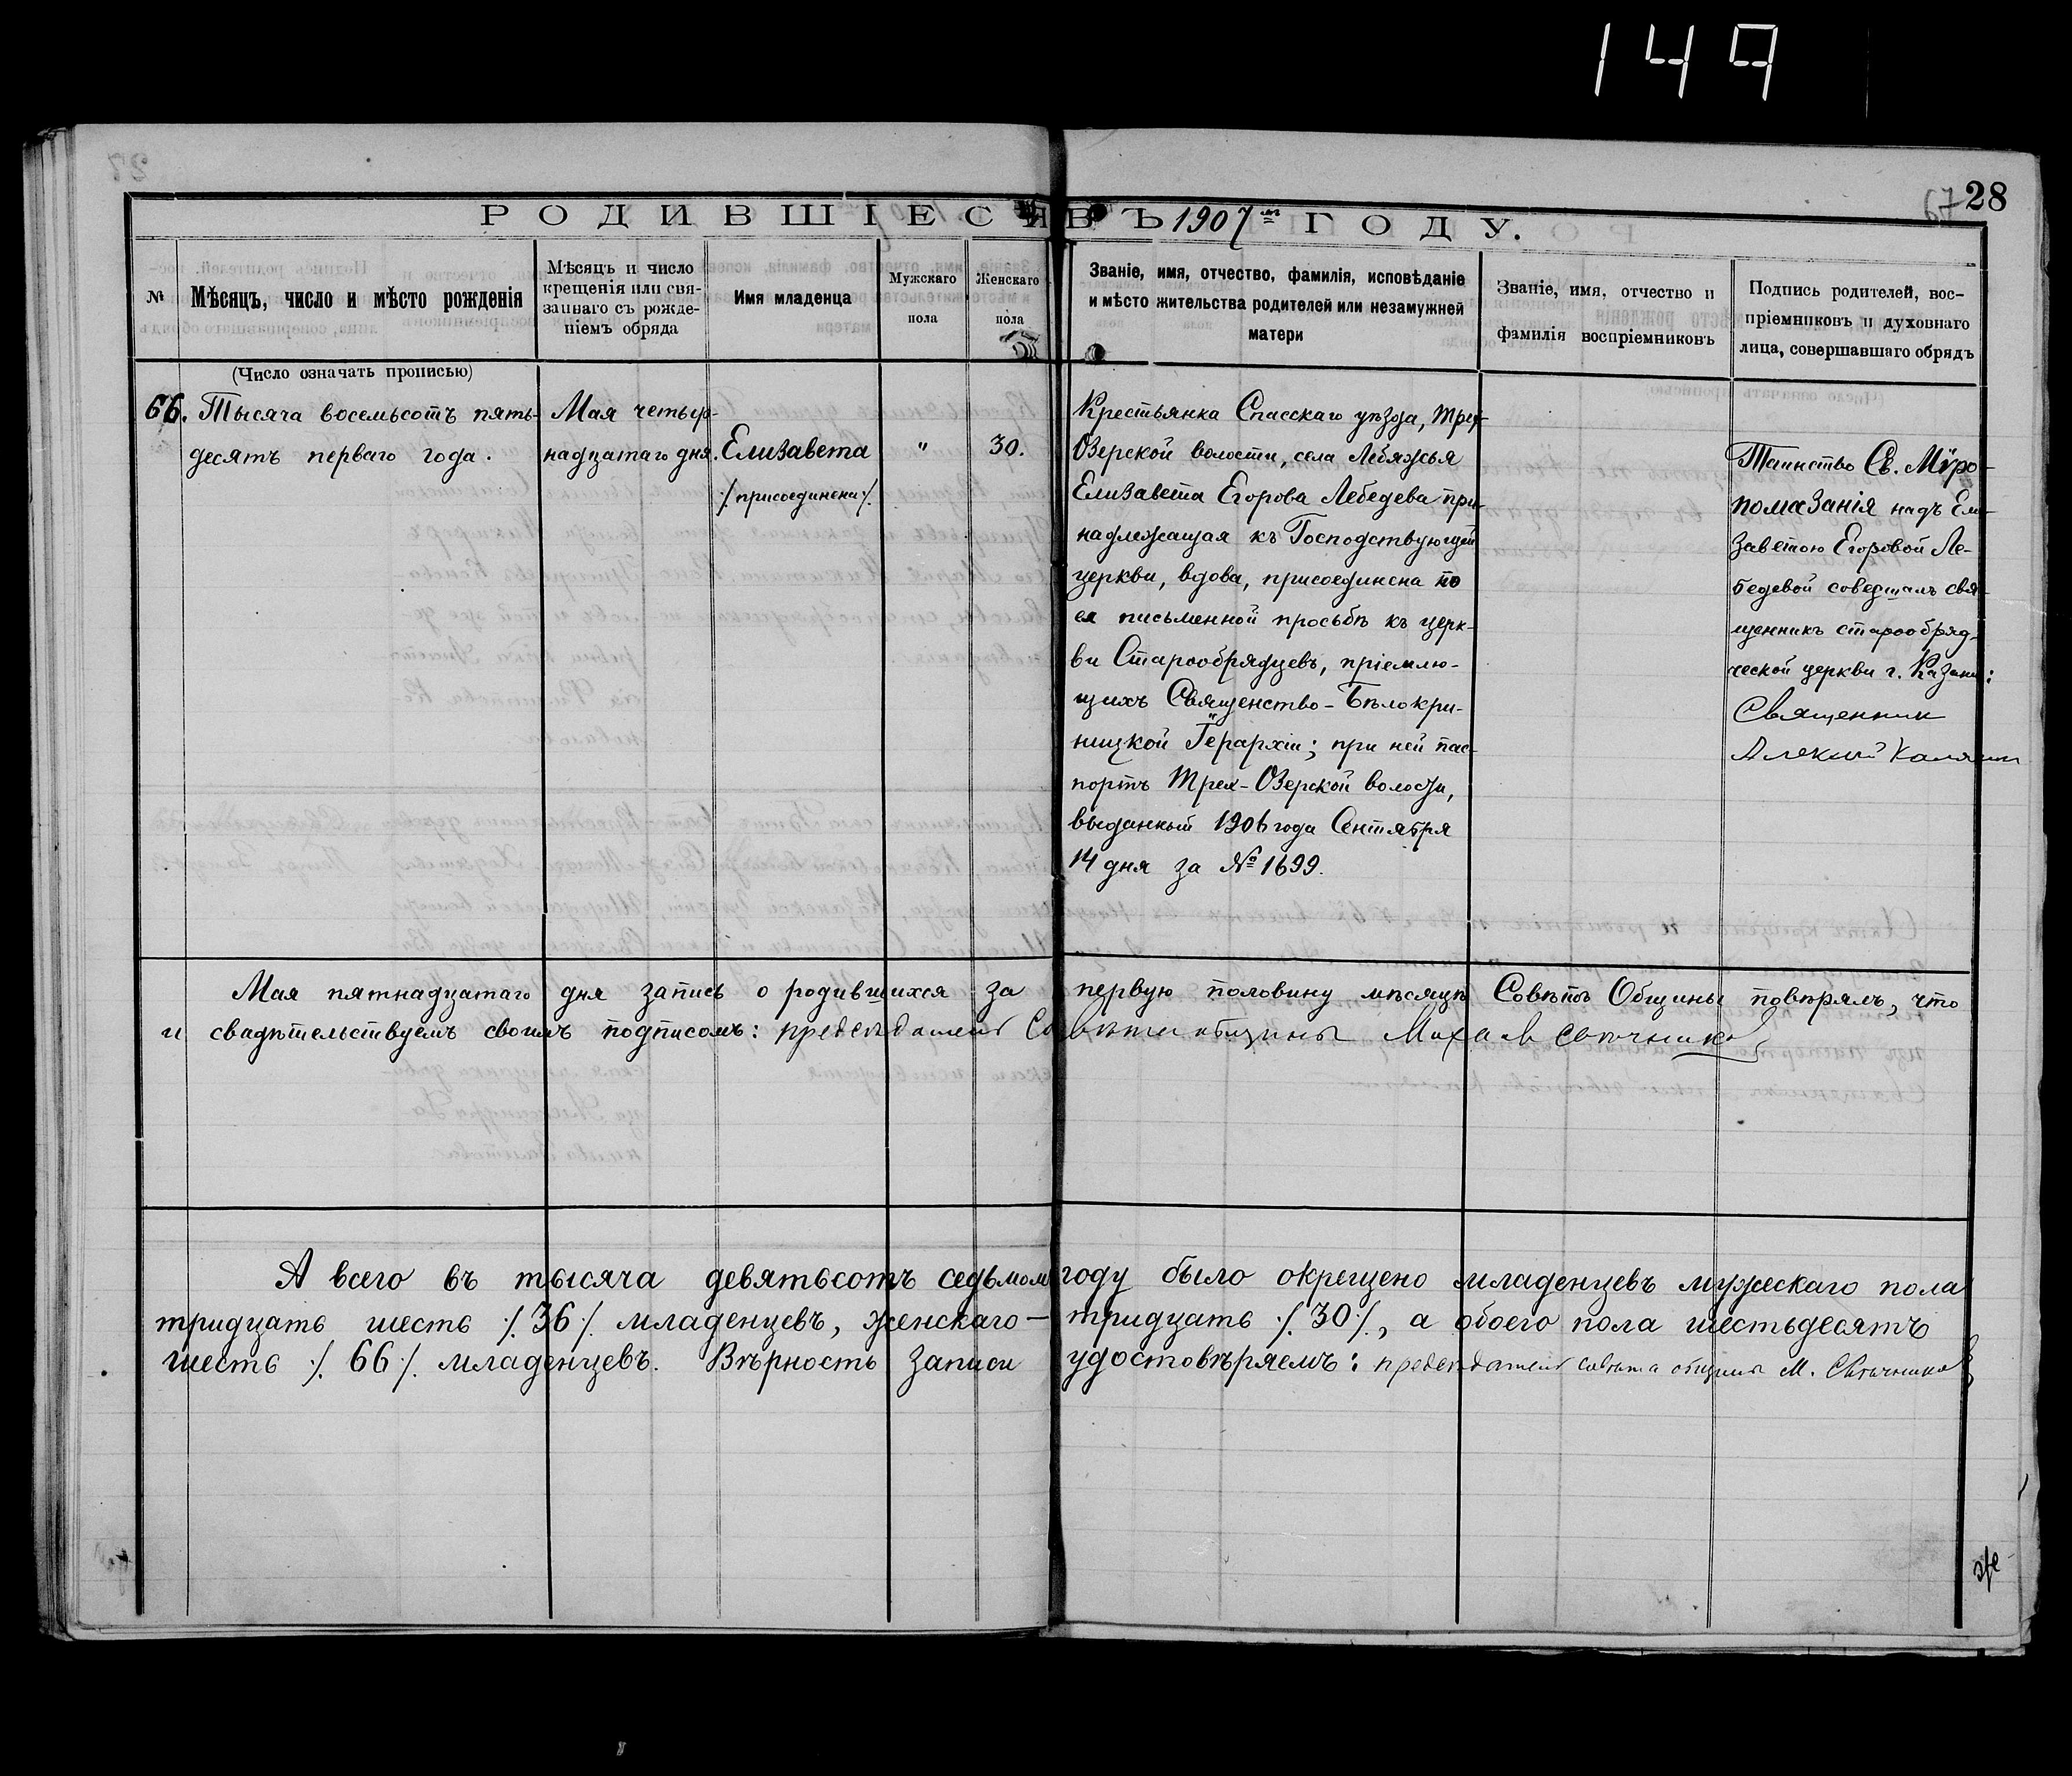 149
67 28
РОДИВШІЕСЯ ВЪ 1907 м ГОДУ.
№
Мѣсяцъ, число и мѣсто рожденія
Мѣсяцъ и число
крещенія или свя-
заннаго съ рожде-
ніемъ обряда
Имя младенца
Мужскаго
пола
Женскаго
пола
Званіе, имя, отчество, фамилія, исповѣданіе
и мѣсто жительства родителей или незамужней
матери
Званіе, имя, отчество и
фамилія воспріемниковъ
Подпись родителей, вос-
пріемниковъ и духовнаго
лица, совершавшаго обрядъ
(Число означать прописью)
66.
Тысяча восемьсотъ пять-
десятъ перваго года.
Мая четыр-
надцатаго дня.
Елизавета
/. присоединена ./.
"
30.
Крестьянка Спасскаго уѣзда, Трех-
Озерской волости, села Лебяжья
Елизавета Егорова Лебедева при-
надлежащая къ Господствующей
церкви, вдова, присоединена по
ея письменной просьбѣ къ церк-
ви Старообрядцевъ, пріемлю-
щихъ Священство-Бѣлокри-
ницкой Іерархіи; при ней пас-
портъ Трех-Озерской волости,
выданный 1906 года Сентября
14 дня за № 1699.
Таинство Св. Мѵро-
помазанія надъ Ели-
заветою Егоровой Ле-
бедевой совершалъ свя-
щенникъ старообряд-
ческой церкви г. Казани:
Священник
Алексий Калягин
Мая пятнадцатаго дня запись о родившихся за первую половину мѣсяца Совѣтъ Общины повѣрялъ, что
и свидѣтельствуемъ своимъ подписомъ: председатель Совѣта общины Михаил Свѣчников
А всего въ тысяча девятьсотъ седьмом году было окрещено младенцевъ мужескаго пола
тридцать шесть /. 36 /. младенцевъ, женскаго — тридцать /. 30 /., а обоего пола шестьдесятъ
шесть /. 66 /. младенцевъ. Вѣрность записи удостовѣряемъ: председатель совѣта общины М. Свѣчников